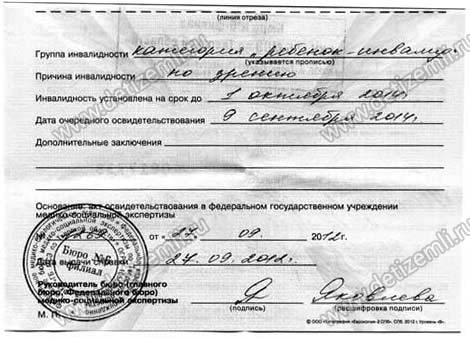 (линия отреза)
Группа инвалидности категория „ребенок-инвалид"
(указывается прописью)
Причина инвалидности по зрению
Инвалидность установлена на срок до 1 октября 2014г.
Дата очередного освидетельствования 9 сентября 2014г.
Дополнительные заключения
Основание: акт освидетельствования в федеральном государственном учреждении
медико-социальной экспертизы
от « 27 » 09 2012г.
Бюро №6
филиал
Дата выдачи справки 27.09.2012г.
Руководитель бюро (главного
бюро, Федерального бюро)
медико-социальной экспертизы
Яковлева
(подпись) (расшифровка подписи)
М. П.
www.detizemli.ru